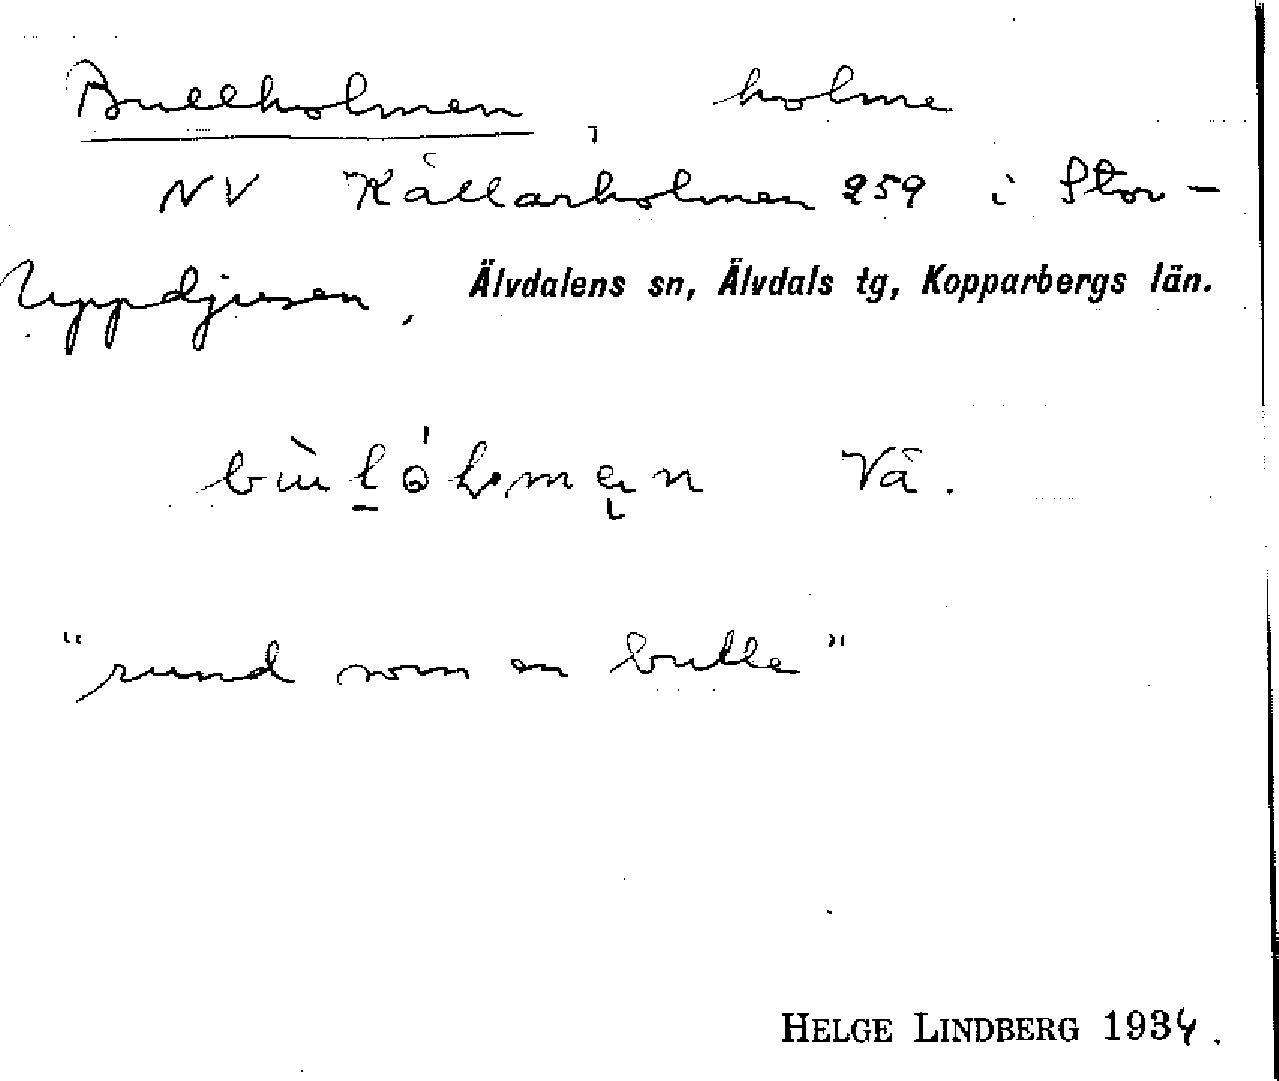 Bullholmen, holme
NV Kållarholmen 259 i Stor-
Uppdjusen, Älvdalens sn, Älvdals tg, Kopparbergs län.
Vå.
"rund som en bulle"
HELGE LINDBERG 1934.